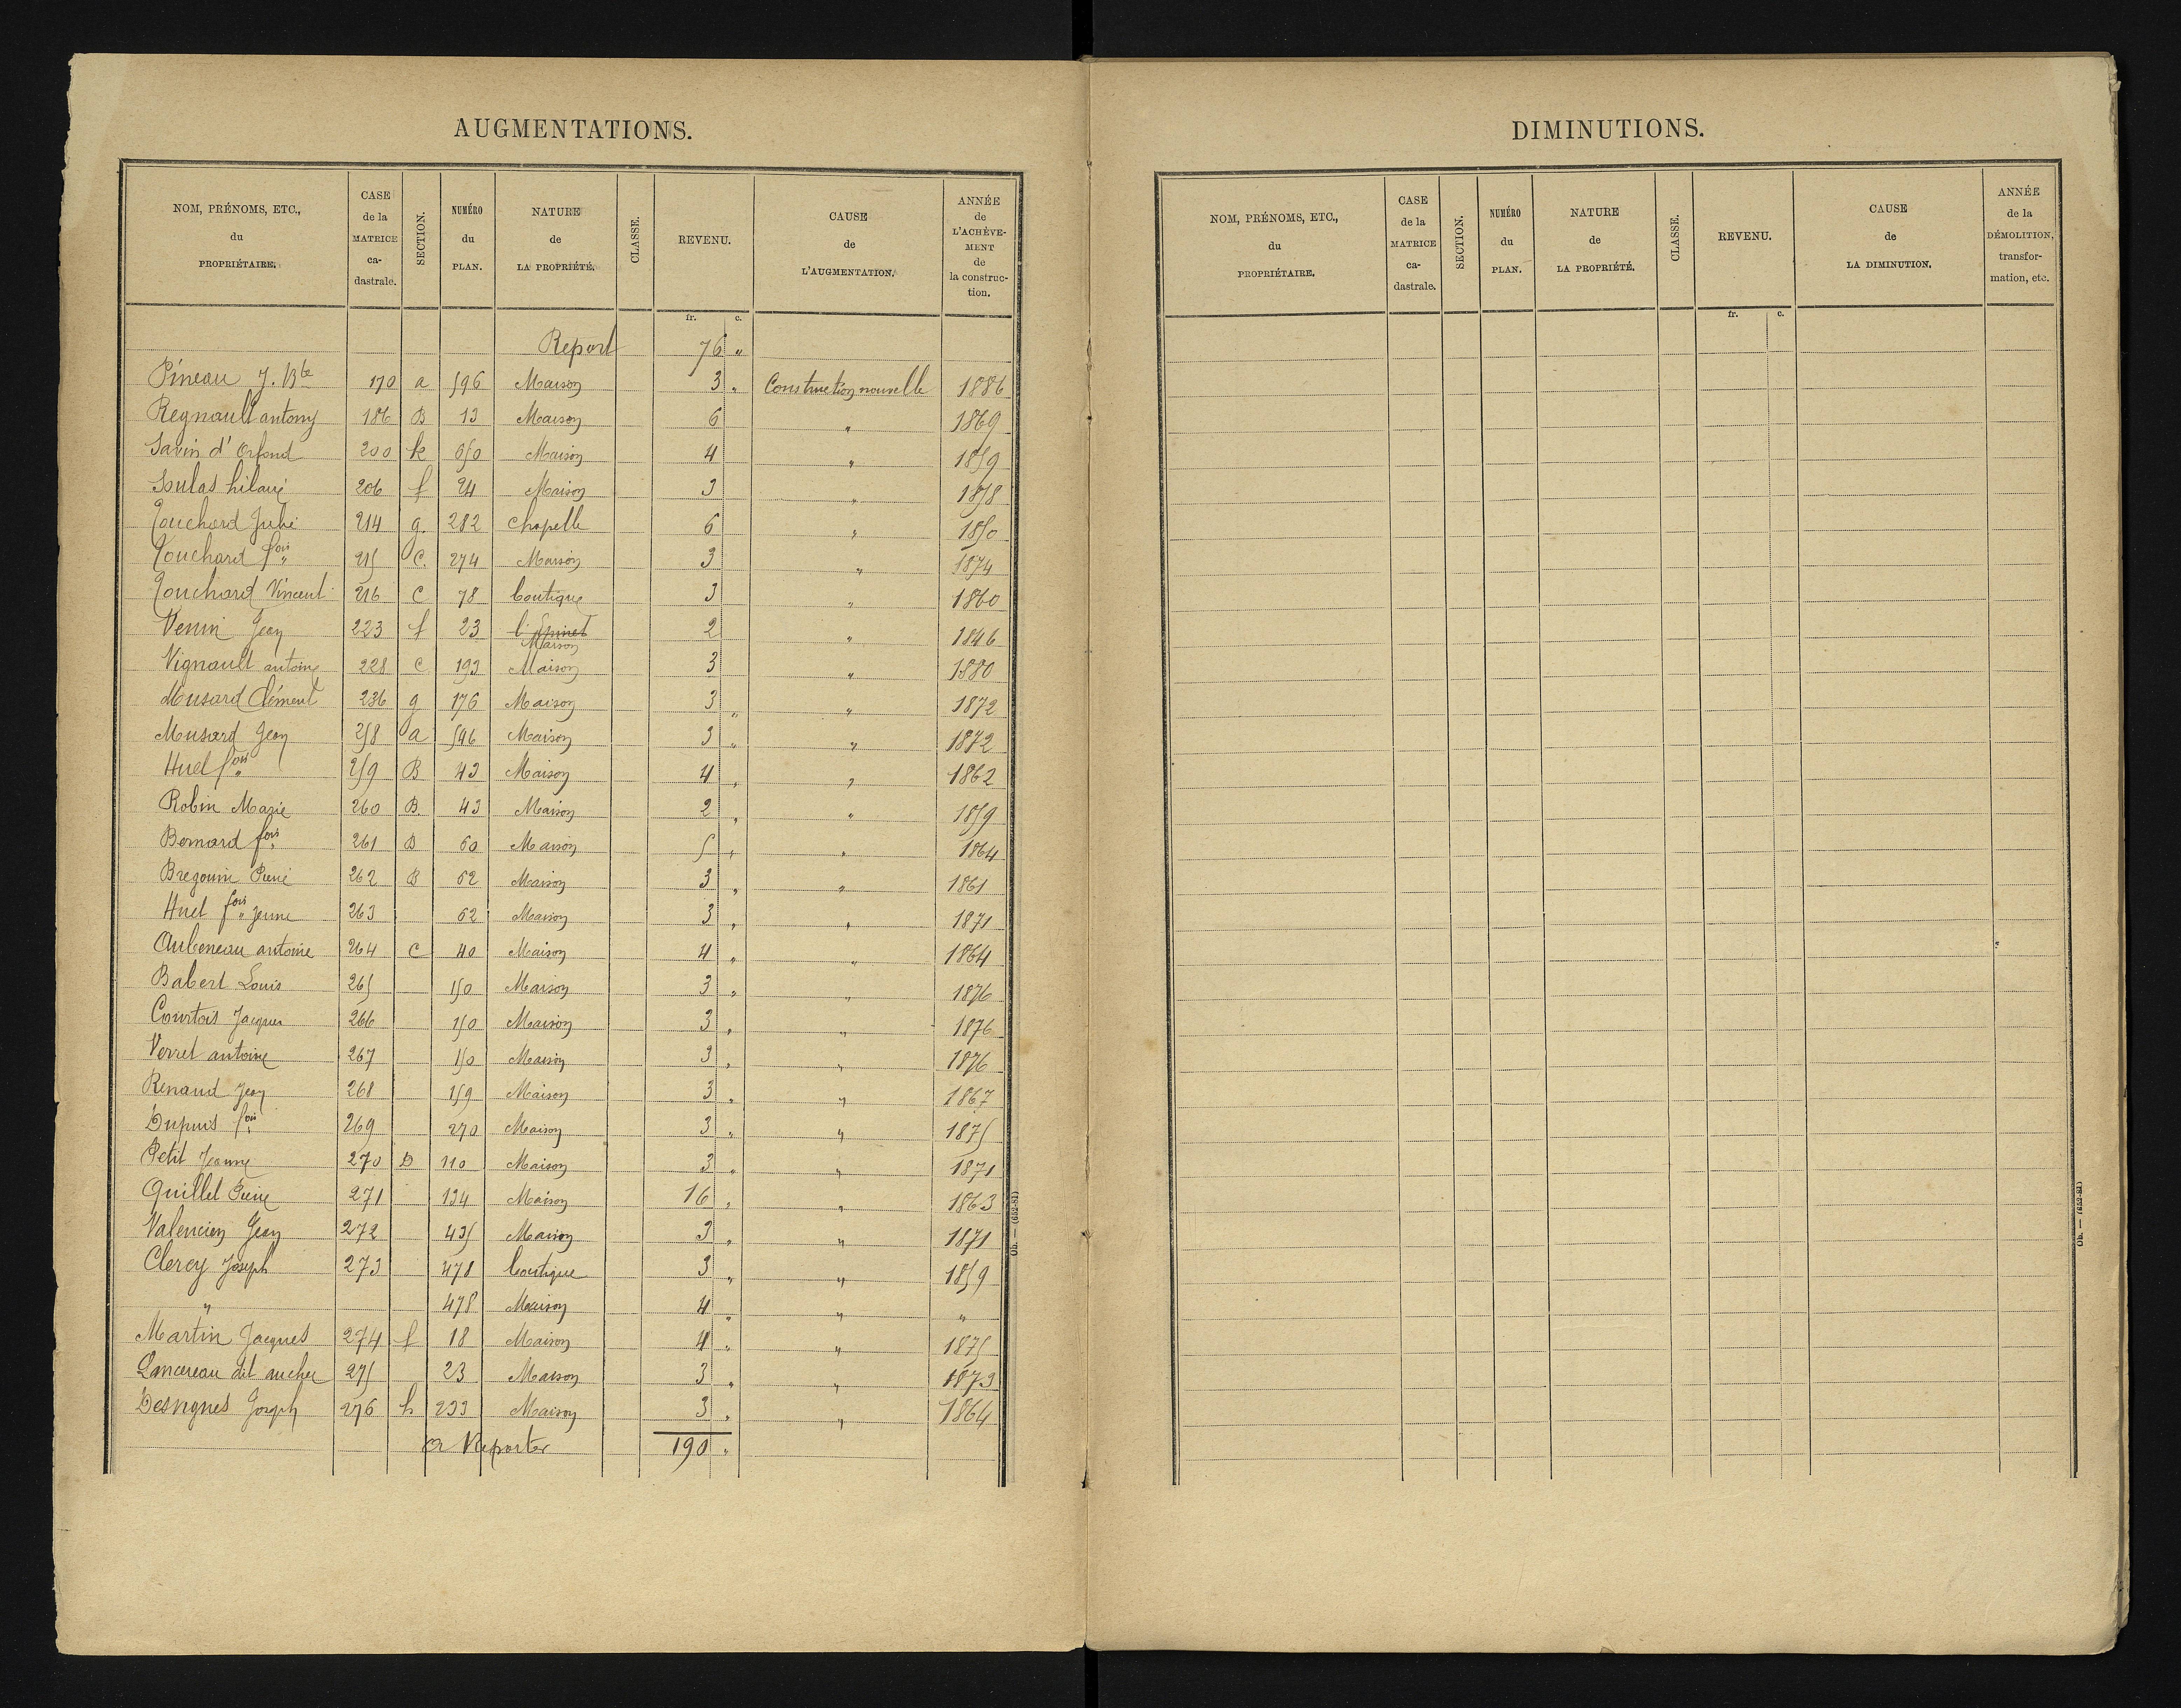 AUGMENTATIONS.
NOM, PRÉNOMS, ETC., du PROPRIÉTAIRE. CASE de la MATRICE ca-dastrale. SECTION. NUMÉRO du PLAN. NATURE de LA PROPRIÉTÉ. CLASSE. REVENU. CAUSE de L'AUGMENTATION. ANNÉE de L'ACHÈVE-MENT de la construc-tion.
fr. c.
Report 76 "
Pineau J. Bte 170 a 596 Maison 3 " Construction nouvelle 1886
Regnault antony 186 B 13 Maison 6 " 1869
Savin d' Orfond 200 k 650 Maison 4 " 1859
Soulas hilaire 206 f 24 Maison 3 " 1858
Touchard Julie 214 g 282 Chapelle 6 " 1850
Touchard fois 215 C. 274 Maison 3 " 1874
Touchard Vincent 216 C 78 boutique 3 " 1860
Venin Jean 223 f 23 Maison 2 " 1846
Vignault antoine 228 C 193 Maison 3 " 1880
Musard Clément 236 g 176 Maison 3 " " 1872
Musard Jean 258 a 596 Maison 3 " " 1872
Huel fois 259 B 43 Maison 4 " " 1862
Robin Marie 260 B. 43 Maison 2 " " 1859
Bernard fois 261 B 60 Maison 5 " " 1864
Bregouin René 262 B 62 Maison 3 " " 1861
Huel fois jeune 263 62 Maison 3 " " 1871
Aubeneau antoine 264 C 40 Maison 4 " " 1864
Babert Louis 265 150 Maison 3 " " 1876
Courtois Jacques 266 150 Maison 3 " " 1876
Verret antoine 267 150 Maison 3 " " 1876
Renaud Jean 268 159 Maison 3 " " 1867
Dupuis fois 269 270 Maison 3 " " 1875
Petit Jeanne 270 D 110 Maison 3 " " 1871
Quillet Pierre 271 134 Maison 16 " " 1863
Valencien Jean 272 435 Maison 3 " " 1871
Clercy Joseph 273 478 boutique 3 " " 1859
" 478 Maison 4 " " "
Martin Jacques 274 f 18 Maison 4 " " 1875
Lancereau dit aucher 275 23 Maison 3 " " 1873
Desvignes Joseph 276 h 233 Maison 3 " " 1864
a Reporter 190 "
Ob. — (652-81)
DIMINUTIONS.
NOM, PRÉNOMS, ETC., du PROPRIÉTAIRE. CASE de la MATRICE ca-dastrale. SECTION. NUMÉRO du PLAN. NATURE de LA PROPRIÉTÉ. CLASSE. REVENU. CAUSE de LA DIMINUTION. ANNÉE de la DÉMOLITION, transfor-mation, etc.
fr. c.
Ob. — (652-81)